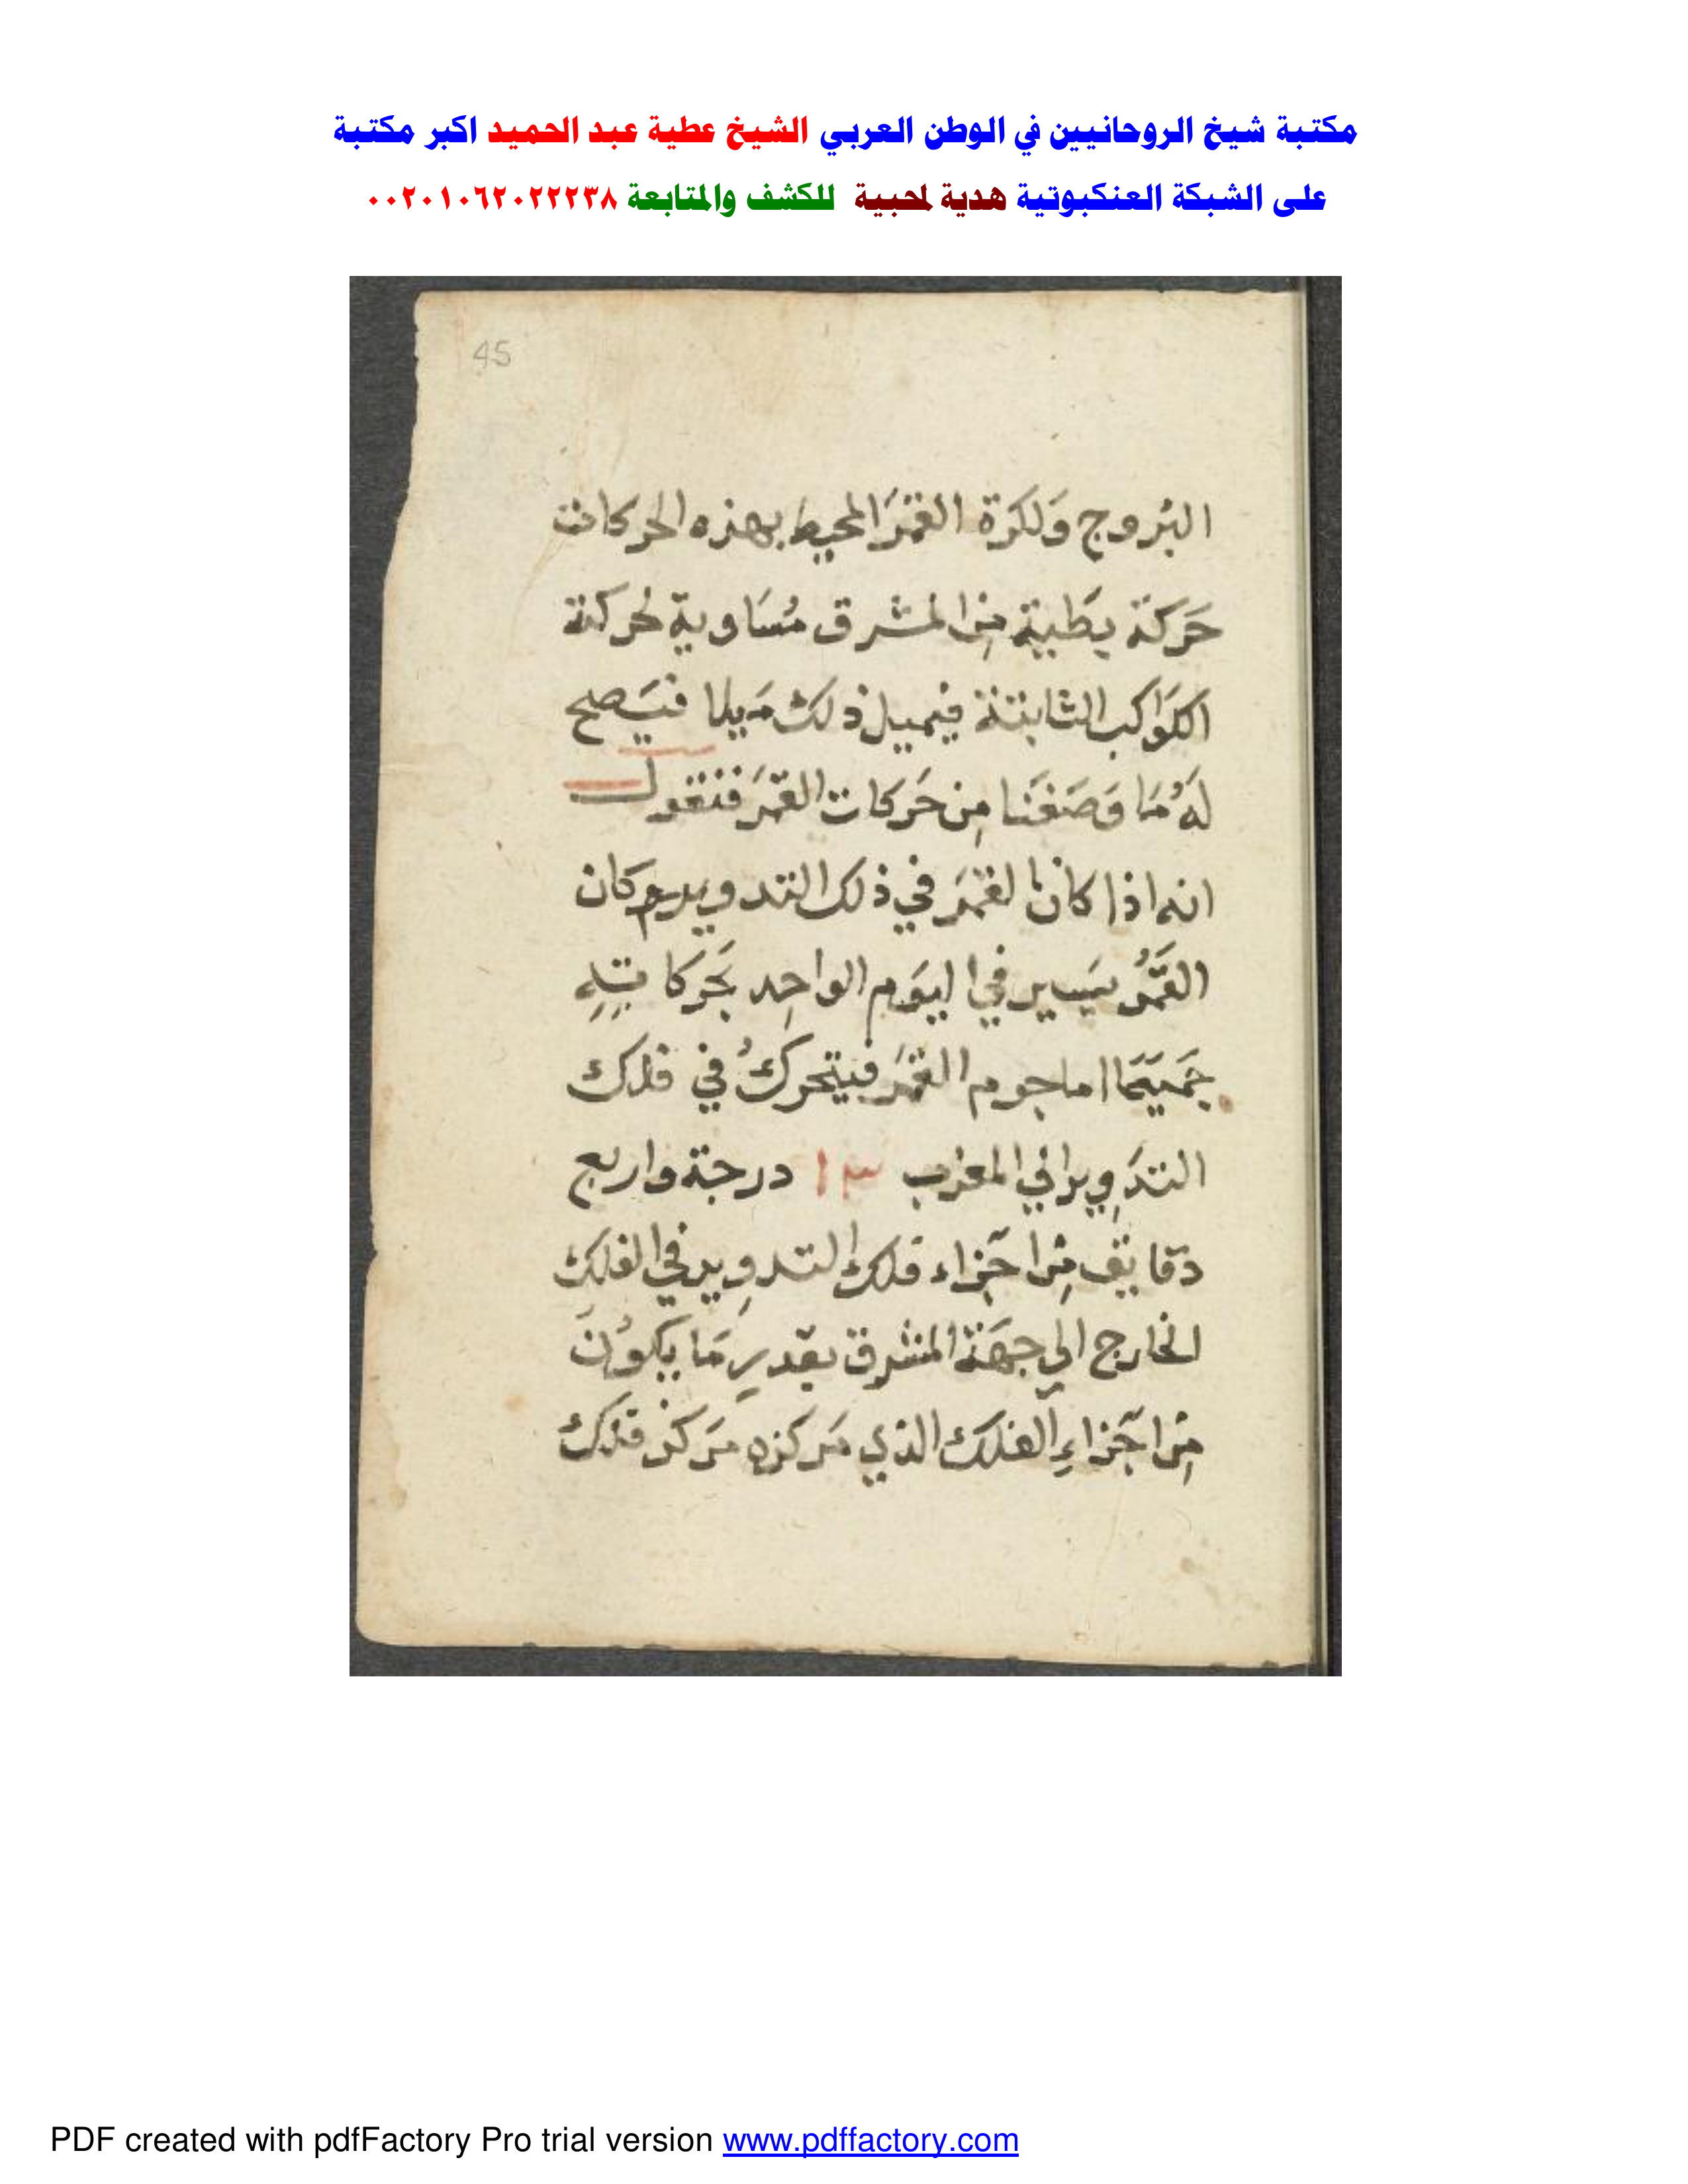 مكتبة شيخ الروحانيين في الوطن العربي الشيخ عطية عبد الحميد اكبر مكتبة
على الشبكة العنكبوتية هدية لمحبية للكشف والمتابعة ٠٠٢٠١٠٦٢٠٢٢٢٣٨
45
البروج وَلكرة القمَر المحيط بهذه الحركات
حَركة بطيية مِن المشرق مُسَاوية لحركة
الكوَاكب الثابتة فيميل ذلك مَيلا فيَصلح
لهُ مَا وَصَفنَا مِن حَركات القمَر فنقول
انه اذا كان القمَر في ذلك التدوير كان
القمَرُ يسَير في اليَوم الواحِد بحَركاتِهِ
جَميعًا اما جرم القمَر فيتحرَكُ في فلك
التدَوِير الي المغرب ١٣ درجة واربع
دقايق مِن اجَزاء فلك التدوِير في الفلك
الخارج الي جهَة المشرق بقدرِ مَا يكوُن
مِن اجَزاءِ الفلك الذي مَركزه مَركز فلك
PDF created with pdfFactory Pro trial version www.pdffactory.com